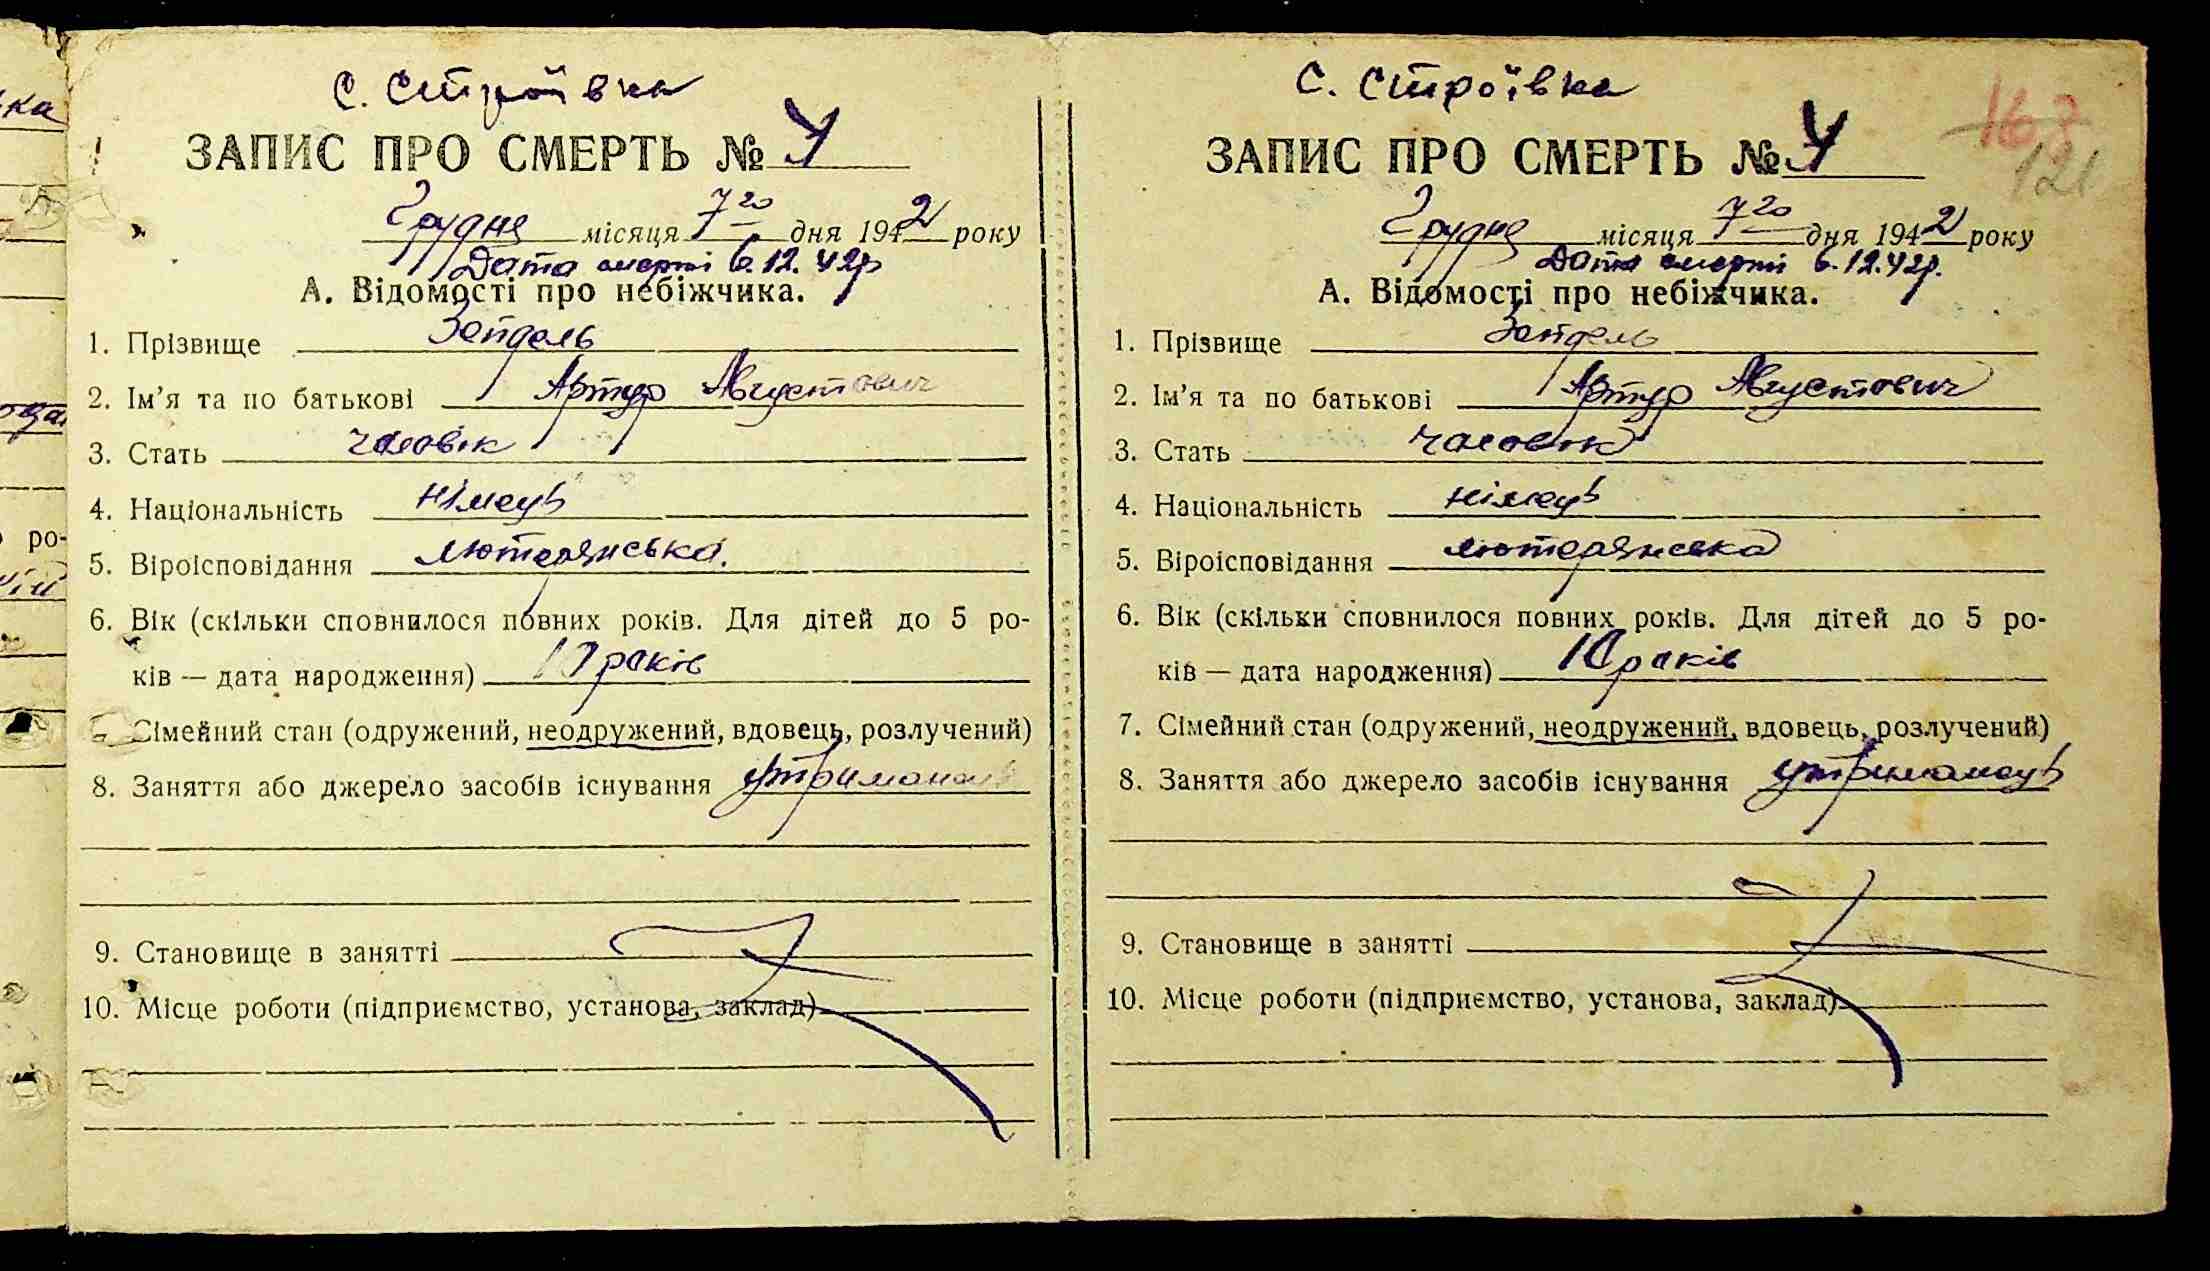 с. Строївка
ЗАПИС ПРО СМЕРТЬ № 4
Грудня місяця 7го дня 1942 року
Дата смерті 6.12.42р
А. Відомості про небіжчика.
1. Прізвище Зейдель
2. Ім’я та по батькові Артур Августович
3. Стать чоловік
4. Національність німець
5. Віроісповідання лютеранська.
6. Вік (скільки сповнилося повних років. Для дітей до 5 ро-
ків — дата народження) років
7. Сімейний стан (одружений, неодружений, вдовець, розлучений)
8. Заняття або джерело засобів існування утриманець
9. Становище в занятті
10. Місце роботи (підприємство, установа, заклад)
с. Строївка
168
121
ЗАПИС ПРО СМЕРТЬ № 4
Грудня місяця 7го дня 1942 року
Дата смерті 6.12.42р.
А. Відомості про небіжчика.
1. Прізвище Зейдель
2. Ім’я та по батькові Артур Августович
3. Стать чоловік
4. Національність німець
5. Віроісповідання лютеранська
6. Вік (скільки сповнилося повних років. Для дітей до 5 ро-
ків — дата народження) 10 років
7. Сімейний стан (одружений, неодружений, вдовець, розлучений)
8. Заняття або джерело засобів існування утриманець
9. Становище в занятті
10. Місце роботи (підприємство, установа, заклад)